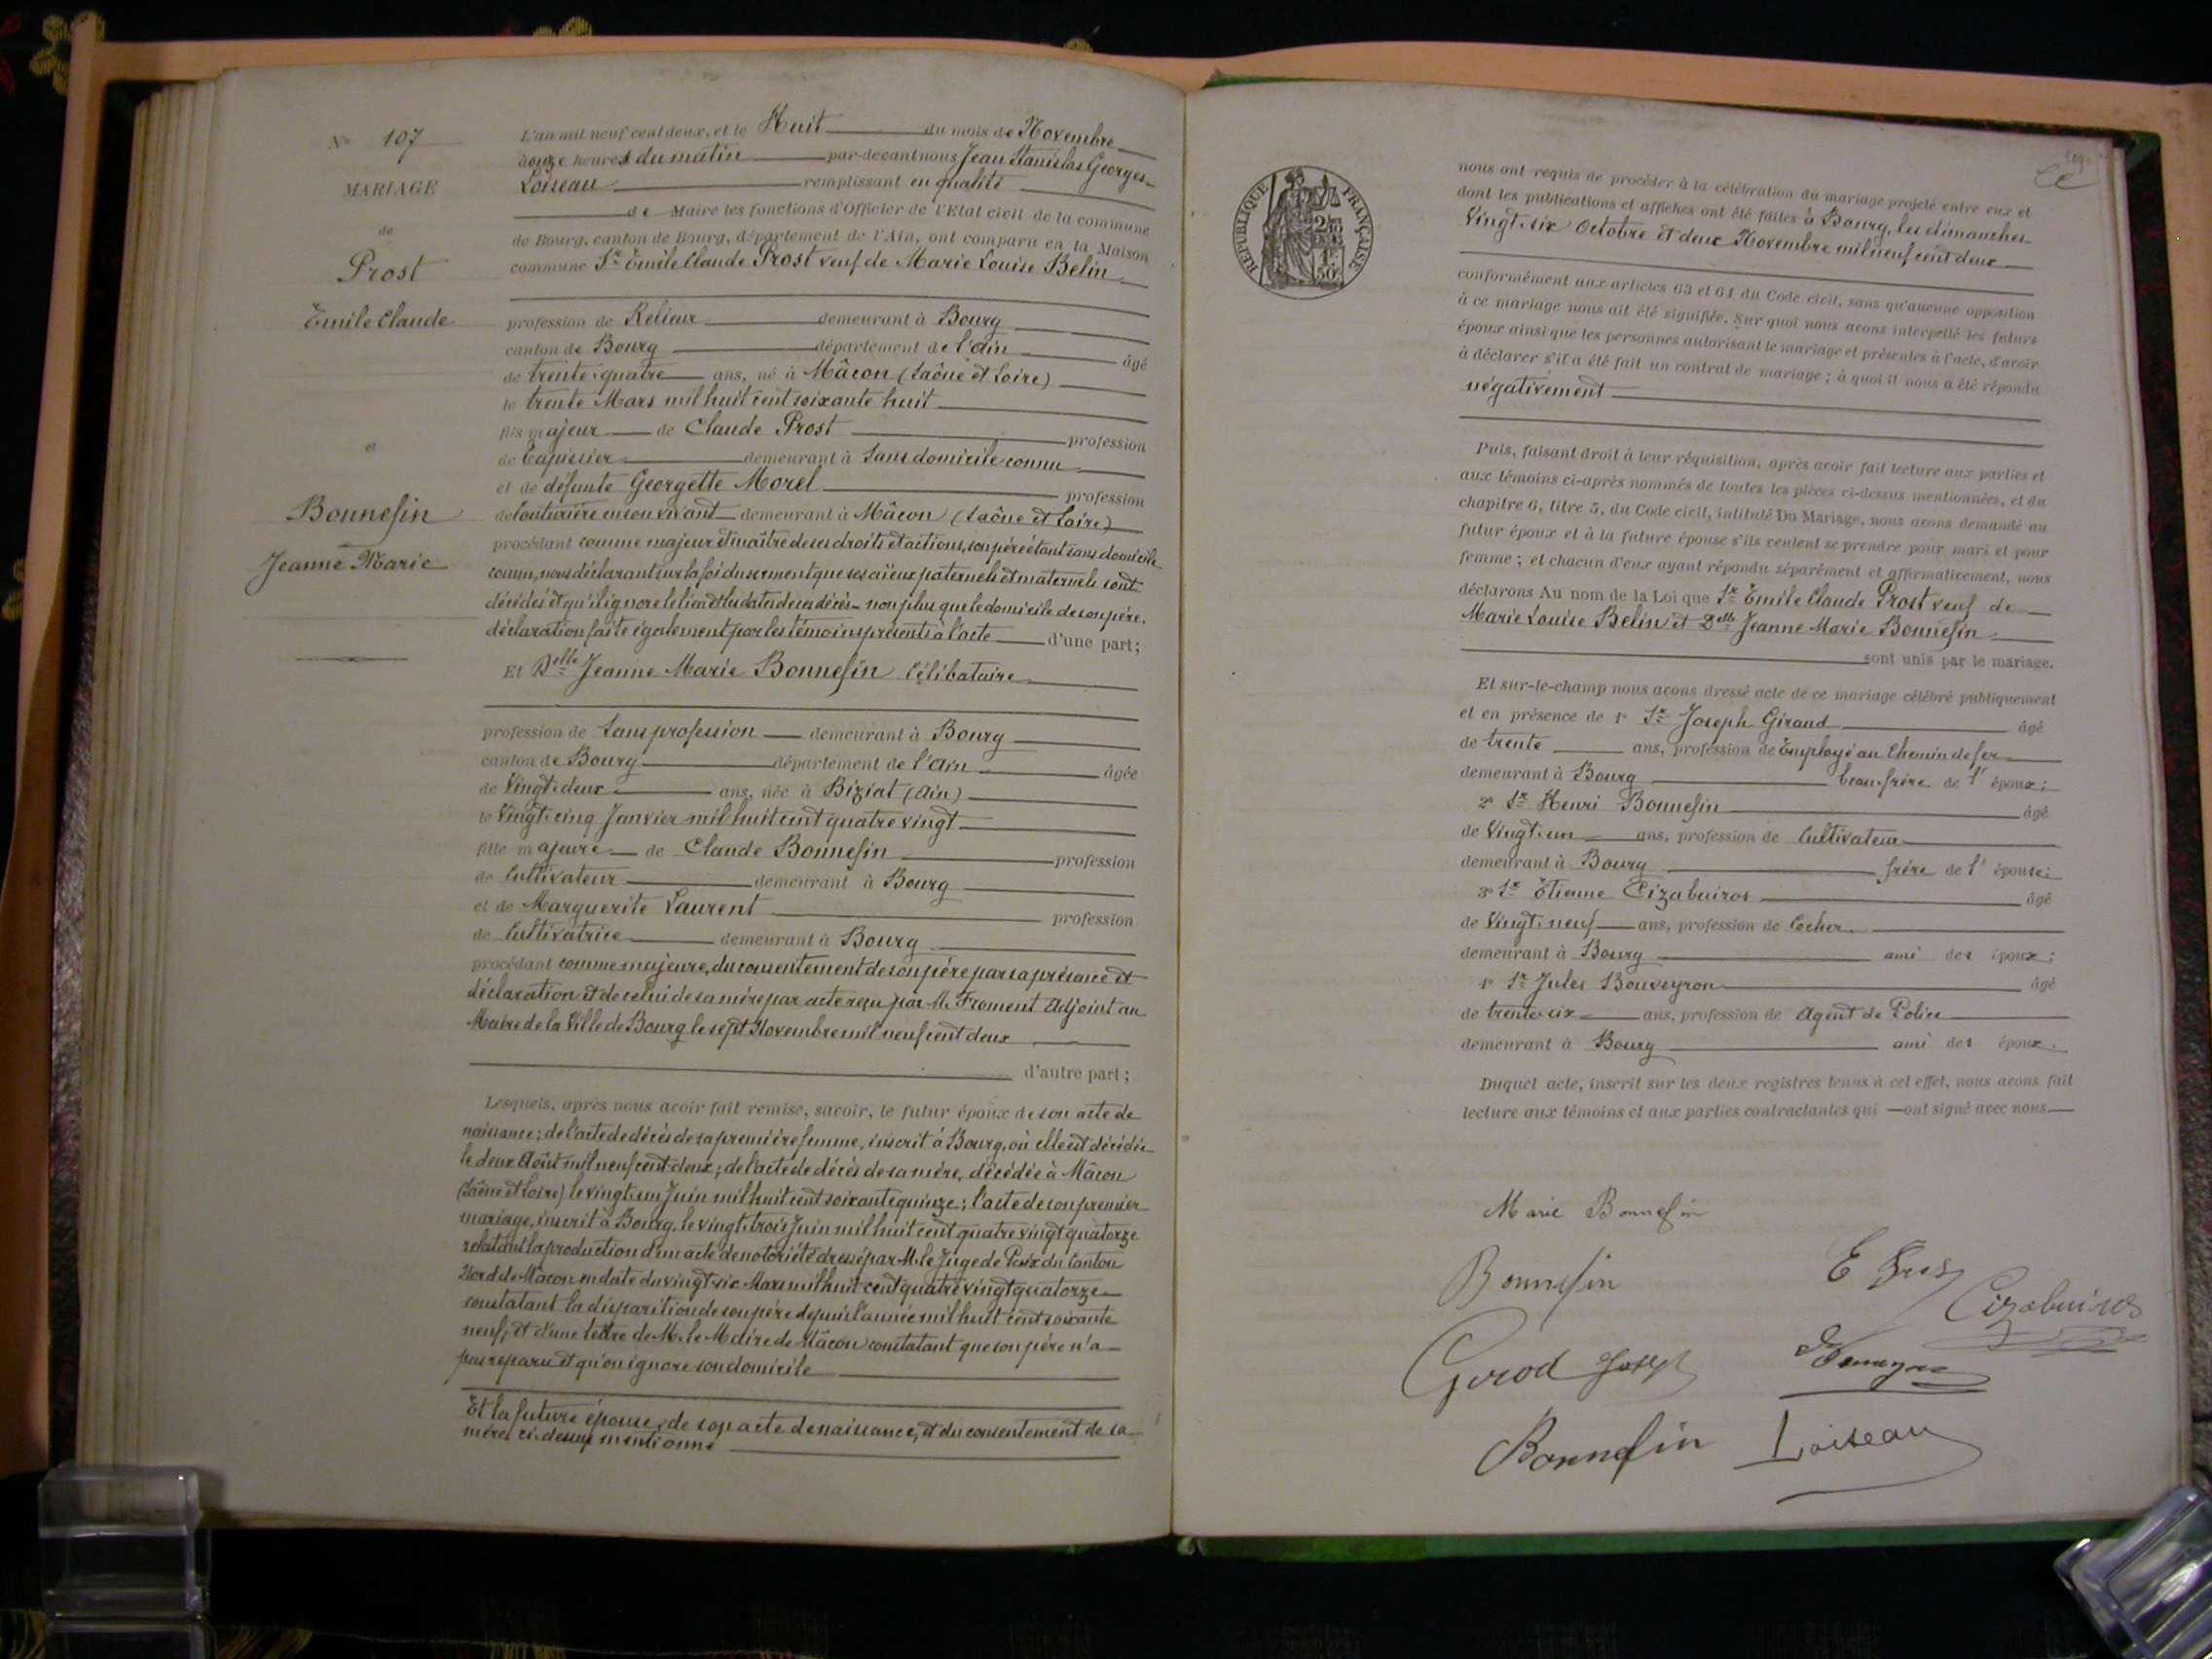 No 107
MARIAGE
de
Prost
Émile Claude
et
Bonnefin
Jeanne Marie
L'an mil neuf cent deux, et le Huit du mois de Novembre
à onze heures du matin par-devant nous Jean Stanislas Georges
Loiseau remplissant en qualité
de Maire les fonctions d'Officier de l'Etat civil de la commune
de Bourg, canton de Bourg, département de l'Ain, ont comparu en la Maison
commune Sr Émile Claude Prost veuf de Marie Louise Belin
profession de Relieur demeurant à Bourg
canton de Bourg département de l'Ain âgé
de trente-quatre ans, né à Mâcon (Saône et Loire)
le trente Mars mil huit cent soixante huit
fils majeur de Claude Prost profession
de Tapissier demeurant à Sans domicile connu
et de défunte Georgette Morel profession
de Couturière en son vivant demeurant à Mâcon (Saône et Loire)
procédant comme majeur et maître de ses droits et actions, son père étant sans domicile
connu, nous déclarant sur la foi du serment que ses aïeux paternels et maternels sont
décédés et qu'il ignore le lieu et les dates de ces décès non plus que le domicile de son père,
déclaration faite également par les témoins présents à l'acte d'une part;
Et Delle Jeanne Marie Bonnefin Célibataire
profession de Sans profession demeurant à Bourg
canton de Bourg département de l'Ain âgée
de Vingt-deux ans, née à Biziat (Ain)
le Vingt-cinq Janvier mil huit cent quatre vingt
fille majeure de Claude Bonnefin profession
de Cultivateur demeurant à Bourg
et de Marguerite Laurent profession
de Cultivatrice demeurant à Bourg
procédant comme majeure, du consentement de son père par sa présence et
déclaration et de celui de sa mère par acte reçu par M. Froment Adjoint au
Maire de la Ville de Bourg le sept Novembre mil neuf cent deux
d'autre part;
Lesquels, après nous avoir fait remise, savoir, le futur époux de son acte de
naissance; de l'acte de décès de sa première femme, inscrit à Bourg, où elle est décédée
le deux Août mil neuf cent deux; de l'acte de décès de sa mère, décédée à Mâcon
(Saône et Loire) le vingt-un Juin mil huit cent soixante quinze; l'acte de son premier
mariage, inscrit à Bourg, le vingt-trois Juin mil huit cent quatre vingt quatorze
relatant la production d'un acte de notoriété dressé par M. le Juge de Paix du Canton
Nord de Mâcon en date du vingt-six Mars mil huit cent quatre vingt quatorze
constatant la disparition de son père depuis l'année mil huit cent soixante
neuf, et d'une lettre de M. le Maire de Mâcon constatant que son père n'a
pas reparu et qu'on ignore son domicile
Et la future épouse, de son acte de naissance, et du consentement de sa
mère ci-dessus mentionné
RÉPUBLIQUE FRANÇAISE
nous ont requis de procéder à la célébration du mariage projeté entre eux et
dont les publications et affiches ont été faites à Bourg, les dimanches
Vingt-six Octobre et deux Novembre mil neuf cent deux
conformément aux articles 63 et 64 du Code civil, sans qu'aucune opposition
à ce mariage nous ait été signifiée. Sur quoi nous avons interpellé les futurs
époux ainsi que les personnes autorisant le mariage et présentes à l'acte, d'avoir
à déclarer s'il a été fait un contrat de mariage; à quoi il nous a été répondu
négativement
Puis, faisant droit à leur réquisition, après avoir fait lecture aux parties et
aux témoins ci-après nommés de toutes les pièces ci-dessus mentionnées, et du
chapitre 6, titre 5, du Code civil, intitulé Du Mariage, nous avons demandé au
futur époux et à la future épouse s'ils veulent se prendre pour mari et pour
femme; et chacun d'eux ayant répondu séparément et affirmativement, nous
déclarons Au nom de la Loi que Sr Émile Claude Prost veuf de
Marie Louise Belin et Delle Jeanne Marie Bonnefin
sont unis par le mariage.
Et sur-le-champ nous avons dressé acte de ce mariage célébré publiquement
et en présence de 1° Sr Joseph Giraud âgé
de trente ans, profession de Employé au Chemin de fer
demeurant à Bourg beau-frère de l'époux;
2° Sr Henri Bonnefin âgé
de Vingt-un ans, profession de Cultivateur
demeurant à Bourg frère de l'épouse;
3° Sr Étienne Cizabuiros âgé
de Vingt-neuf ans, profession de Cocher
demeurant à Bourg ami des époux;
4° Sr Jules Bouveyron âgé
de trente-six ans, profession de Agent de Police
demeurant à Bourg ami des époux.
Duquel acte, inscrit sur les deux registres tenus à cet effet, nous avons fait
lecture aux témoins et aux parties contractantes qui ont signé avec nous
Marie Bonnefin
Bonnefin
E Prost
Cizabuiros
Girod Joseph
Bonnefin
Loiseau